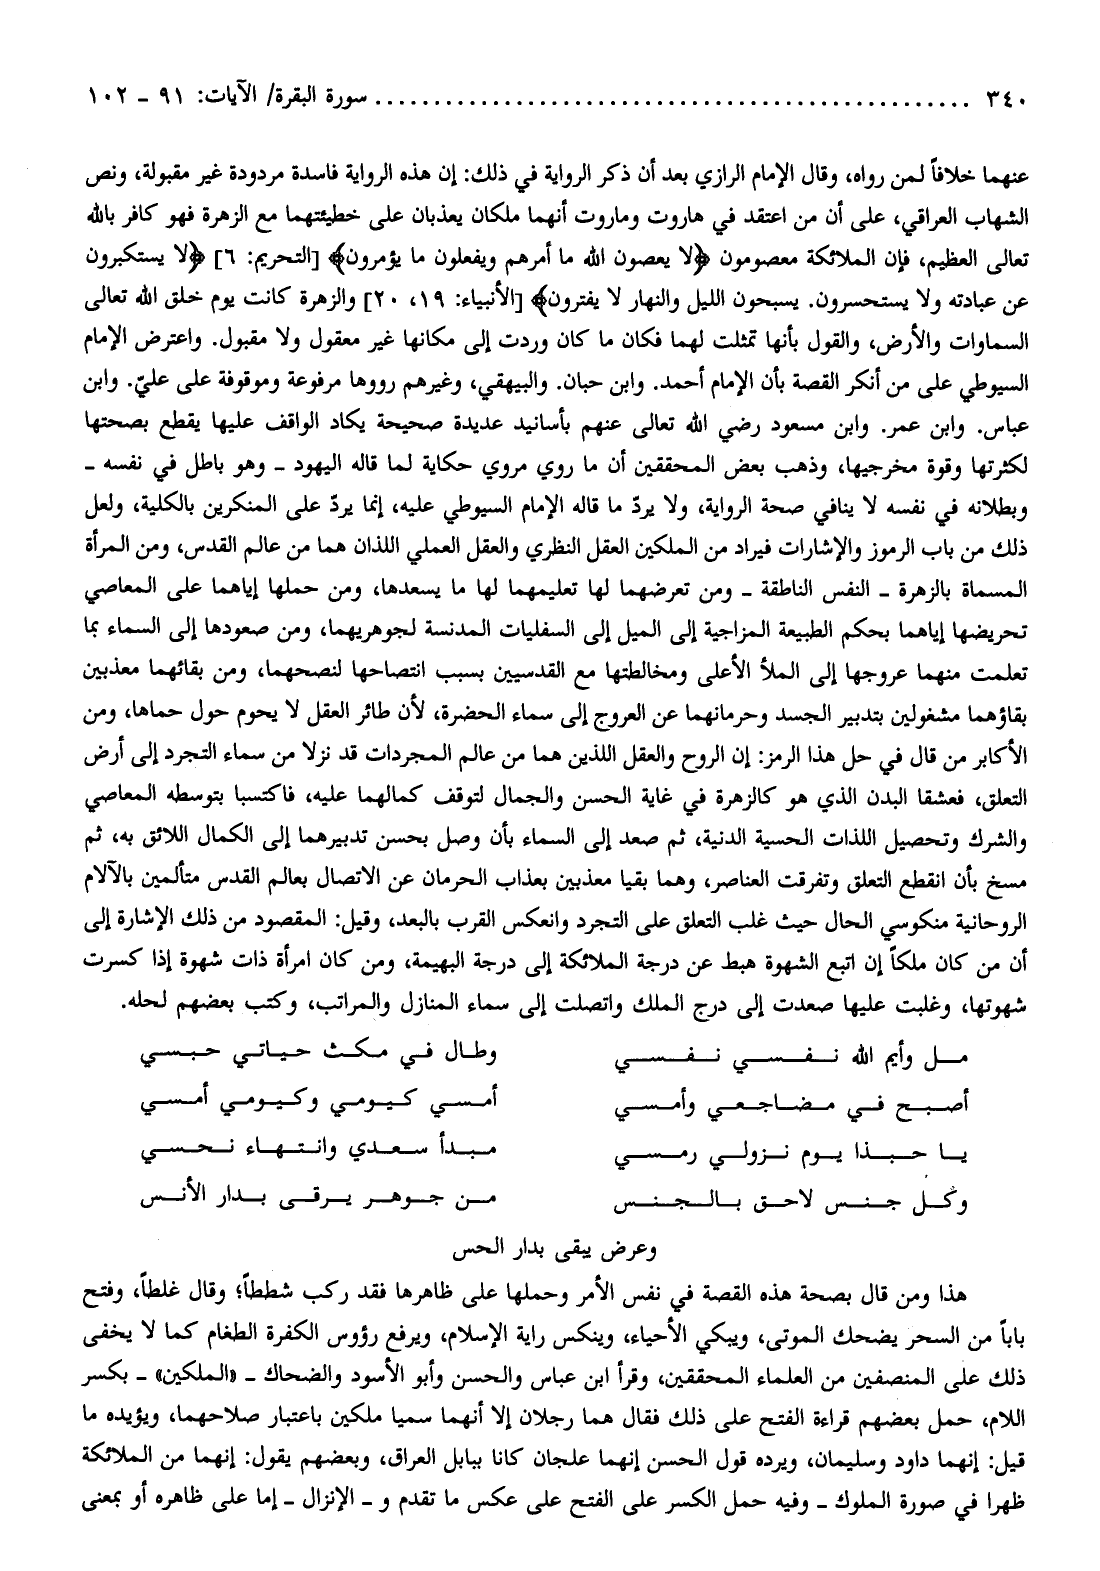 ٣٤٠ ........................................................ سورة البقرة/ الآيات: ٩١ - ١٠٢
عنهما خلافاً لمن رواه، وقال الإمام الرازي بعد أن ذكر الرواية في ذلك: إن هذه الرواية فاسدة مردودة غير مقبولة، ونص
الشهاب العراقي، على أن من اعتقد في هاروت وماروت أنهما ملكان يعذبان على خطيئتهما مع الزهرة فهو كافر بالله
تعالى العظيم، فإن الملائكة معصومون ﴿لا يعصون الله ما أمرهم ويفعلون ما يؤمرون﴾ [التحريم: ٦] ﴿لا يستكبرون
عن عبادته ولا يستحسرون. يسبحون الليل والنهار لا يفترون﴾ [الأنبياء: ١٩، ٢٠] والزهرة كانت يوم خلق الله تعالى
السماوات والأرض، والقول بأنها تمثلت لهما فكان ما كان وردت إلى مكانها غير معقول ولا مقبول. واعترض الإمام
السيوطي على من أنكر القصة بأن الإمام أحمد. وابن حبان. والبيهقي، وغيرهم رووها مرفوعة وموقوفة على عليّ. وابن
عباس. وابن عمر. وابن مسعود رضي الله تعالى عنهم بأسانيد عديدة صحيحة يكاد الواقف عليها يقطع بصحتها
لكثرتها وقوة مخرجيها، وذهب بعض المحققين أن ما روي مروي حكاية لما قاله اليهود ـ وهو باطل في نفسه ـ
وبطلانه في نفسه لا ينافي صحة الرواية، ولا يردّ ما قاله الإمام السيوطي عليه، إنما يردّ على المنكرين بالكلية، ولعل
ذلك من باب الرموز والإشارات فيراد من الملكين العقل النظري والعقل العملي اللذان هما من عالم القدس، ومن المرأة
المسماة بالزهرة ـ النفس الناطقة ـ ومن تعرضهما لها تعليمهما لها ما يسعدها، ومن حملها إياهما على المعاصي
تحريضها إياهما بحكم الطبيعة المزاجية إلى الميل إلى السفليات المدنسة لجوهريهما، ومن صعودها إلى السماء بما
تعلمت منهما عروجها إلى الملأ الأعلى ومخالطتها مع القدسيين بسبب انتصاحها لنصحهما، ومن بقائهما معذبين
بقاؤهما مشغولين بتدبير الجسد وحرمانهما عن العروج إلى سماء الحضرة، لأن طائر العقل لا يحوم حول حماها، ومن
الأكابر من قال في حل هذا الرمز: إن الروح والعقل اللذين هما من عالم المجردات قد نزلا من سماء التجرد إلى أرض
التعلق، فعشقا البدن الذي هو كالزهرة في غاية الحسن والجمال لتوقف كمالهما عليه، فاكتسبا بتوسطه المعاصي
والشرك وتحصيل اللذات الحسية الدنية، ثم صعد إلى السماء بأن وصل بحسن تدبيرهما إلى الكمال اللائق به، ثم
مسخ بأن انقطع التعلق وتفرقت العناصر، وهما بقيا معذبين بعذاب الحرمان عن الاتصال بعالم القدس متألمين بالآلام
الروحانية منكوسي الحال حيث غلب التعلق على التجرد وانعكس القرب بالبعد، وقيل: المقصود من ذلك الإشارة إلى
أن من كان ملكاً إن اتبع الشهوة هبط عن درجة الملائكة إلى درجة البهيمة، ومن كان امرأة ذات شهوة إذا كسرت
شهوتها، وغلبت عليها صعدت إلى درج الملك واتصلت إلى سماء المنازل والمراتب، وكتب بعضهم لحله.
مل وأيم الله نفسي نفسي وطال في مكث حياتي حبسي
أصبح في مضاجعي وأمسي أمسي كيومي وكيومي أمسي
يا حبذا يوم نزولي رمسي مبدأ سعدي وانتهاء نحسي
وكل جنس لاحق بالجنس من جوهر يرقى بدار الأنس
وعرض يبقى بدار الحس
هذا ومن قال بصحة هذه القصة في نفس الأمر وحملها على ظاهرها فقد ركب شططاً؛ وقال غلطاً، وفتح
باباً من السحر يضحك الموتى، ويبكي الأحياء، وينكس راية الإسلام، ويرفع رؤوس الكفرة الطغام كما لا يخفى
ذلك على المنصفين من العلماء المحققين، وقرأ ابن عباس والحسن وأبو الأسود والضحاك ـ «الملكين» ـ بكسر
اللام، حمل بعضهم قراءة الفتح على ذلك فقال هما رجلان إلا أنهما سميا ملكين باعتبار صلاحهما، ويؤيده ما
قيل: إنهما داود وسليمان، ويرده قول الحسن إنهما علجان كانا ببابل العراق، وبعضهم يقول: إنهما من الملائكة
ظهرا في صورة الملوك ـ وفيه حمل الكسر على الفتح على عكس ما تقدم و ـ الإنزال ـ إما على ظاهره أو بمعنى